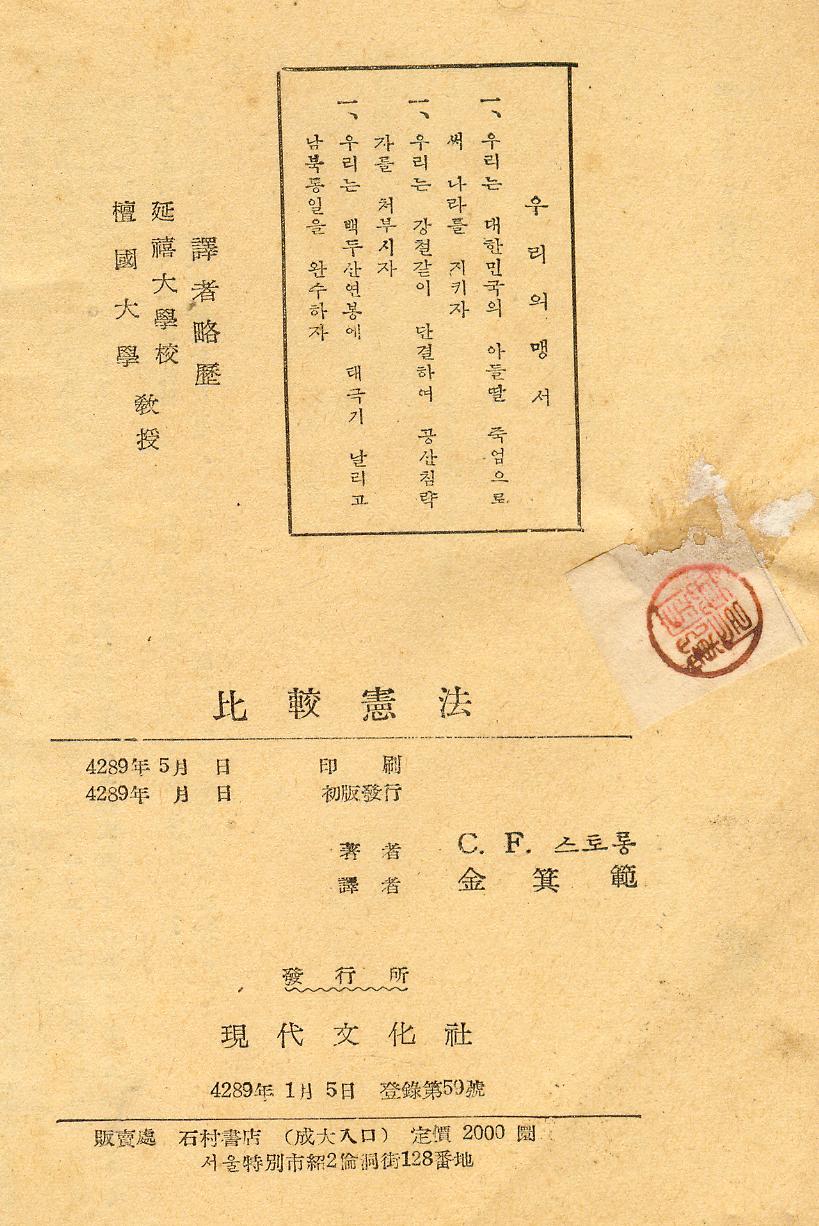 우리의맹서
一、우리는 대한민국의 아들딸 죽엄으로
써 나라를 지키자
一、우리는 강철같이 단결하여 공산침략
자를 처부시자
一、우리는 백두산연봉에 태극기 날리고
남북통일을 완수하자
譯者略歷
延禧大學校
檀國大學
敎授
比較憲法
4289年 5月 日 印刷
4289年 月 日 初版發行
著者 C. F. 스토롱
譯者 金箕範
發行所
現代文化社
4289年 1月 5日 登錄第59號
販賣處 石村書店 (成大入口) 定價 2000 圜
서울特別市紹2倫洞街128番地